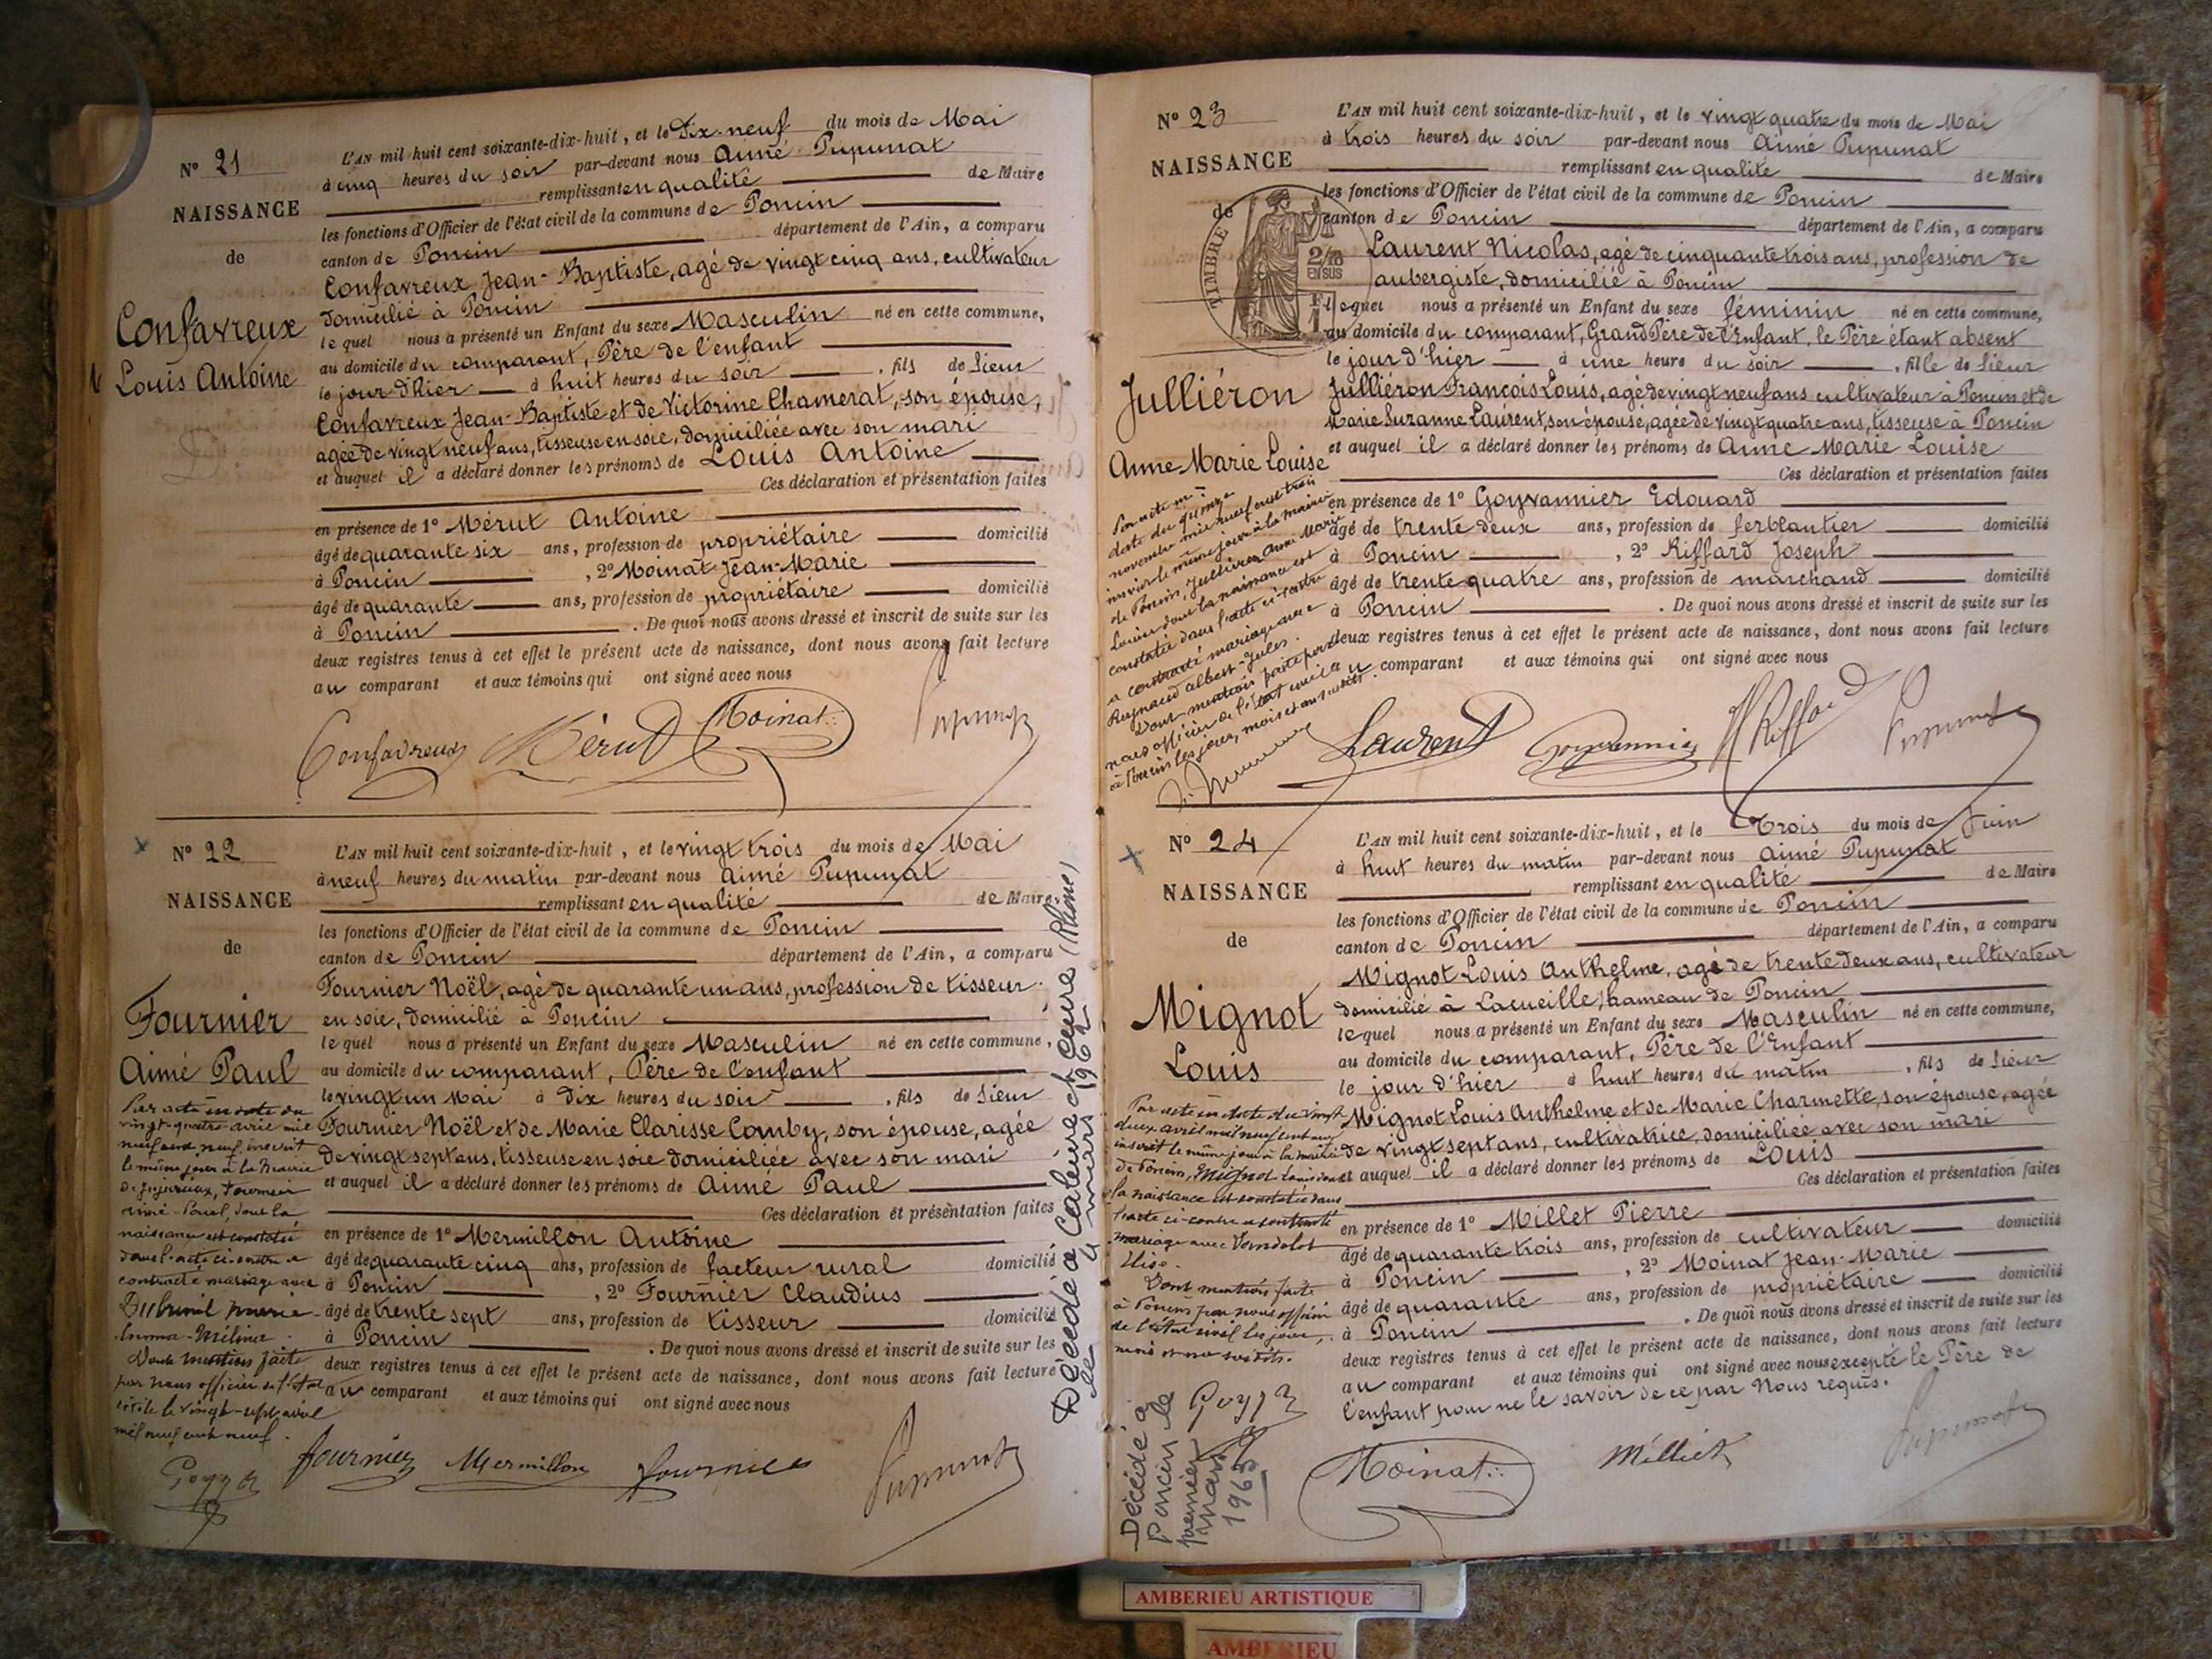 N° 21
NAISSANCE
de
Confavreux
Louis Antoine
L'AN mil huit cent soixante-dix-huit, et le Dix-neuf du mois de Mai
à cinq heures du soir par-devant nous Aimé Pupunat
remplissant en qualité de Maire
les fonctions d'Officier de l'état civil de la commune de Poncin
canton de Poncin département de l'Ain, a comparu
Confavreux Jean-Baptiste, agé de vingt cinq ans, cultivateur
domicilié à Poncin
lequel nous a présenté un Enfant du sexe Masculin né en cette commune,
au domicile du comparant, Père de l'enfant
le jour d'hier à huit heures du soir, fils de Sieur
Confavreux Jean-Baptiste et de Victorine Chamerat, son épouse,
agée de vingt neuf ans, tisseuse en soie, domiciliée avec son mari
et auquel il a déclaré donner les prénoms de Louis Antoine
Ces déclaration et présentation faites
en présence de 1° Mérut Antoine
âgé de quarante six ans, profession de propriétaire domicilié
à Poncin, 2° Moinat Jean-Marie
âgé de quarante ans, profession de propriétaire domicilié
à Poncin. De quoi nous avons dressé et inscrit de suite sur les
deux registres tenus à cet effet le présent acte de naissance, dont nous avons fait lecture
au comparant et aux témoins qui ont signé avec nous
Confavreux Mérut Moinat Pupunat
N° 22
NAISSANCE
de
Fournier
Aimé Paul
Par acte en date du
vingt-quatre avril mil
neuf cent neuf, inscrit
le même jour à la Mairie
de Jujurieux, Fournier
Aimé-Paul, dont la
naissance est constatée
dans l'acte ci-contre a
contracté mariage avec
Dubreuil Marie-
Emma-Mélina.
Dont mention faite
par nous officier de l'état
civil le vingt-sept avril
mil neuf cent neuf.
Goyat
L'AN mil huit cent soixante-dix-huit, et le vingt trois du mois de Mai
à neuf heures du matin par-devant nous Aimé Pupunat
remplissant en qualité de Maire
les fonctions d'Officier de l'état civil de la commune de Poncin
canton de Poncin département de l'Ain, a comparu
Fournier Noël, agé de quarante un ans, profession de tisseur
en soie, domicilié à Poncin
lequel nous a présenté un Enfant du sexe Masculin né en cette commune,
au domicile du comparant, Père de l'enfant
le vingt un Mai à dix heures du soir, fils de Sieur
Fournier Noël et de Marie Clarisse Comby, son épouse, agée
de vingt sept ans, tisseuse en soie domiciliée avec son mari
et auquel il a déclaré donner les prénoms de Aimé Paul
Ces déclaration et présentation faites
en présence de 1° Mermillon Antoine
âgé de quarante cinq ans, profession de facteur rural domicilié
à Poncin, 2° Fournier Claudius
âgé de trente sept ans, profession de tisseur domicilié
à Poncin. De quoi nous avons dressé et inscrit de suite sur les
deux registres tenus à cet effet le présent acte de naissance, dont nous avons fait lecture
au comparant et aux témoins qui ont signé avec nous
fournier Mermillon fournier Pupunat
Décédé à Caluire et Cuire (Rhône)
le 4 mars 1962
N° 23
NAISSANCE
de
TIMBRE
2/10
EN SUS
Julliéron
Anne Marie Louise
Par acte en
date du quinze
novembre mil neuf cent trois
inscrit le même jour à la mairie
de Poncin, Julliéron Anne Marie
Louise dont la naissance est
constatée dans l'acte ci-contre
a contracté mariage avec
Reynaud Albert-Jules.
Dont mention faite par
nous officier de l'état civil
à Poncin les jour, mois et an susdits.
L'AN mil huit cent soixante-dix-huit, et le vingt quatre du mois de Mai
à trois heures du soir par-devant nous Aimé Pupunat
remplissant en qualité de Maire
les fonctions d'Officier de l'état civil de la commune de Poncin
canton de Poncin département de l'Ain, a comparu
Laurent Nicolas, agé de cinquante trois ans, profession de
aubergiste, domicilié à Poncin
lequel nous a présenté un Enfant du sexe féminin né en cette commune,
au domicile du comparant, Grand Père de l'Enfant, le Père étant absent
le jour d'hier à une heure du soir, fille de Sieur
Julliéron François Louis, agé de vingt neuf ans cultivateur à Poncin et de
Marie Suzanne Laurent, son épouse, agée de vingt quatre ans, tisseuse à Poncin
et auquel il a déclaré donner les prénoms de Anne Marie Louise
Ces déclaration et présentation faites
en présence de 1° Goyvannier Edouard
âgé de trente deux ans, profession de ferblantier domicilié
à Poncin, 2° Riffard Joseph
âgé de trente quatre ans, profession de marchand domicilié
à Poncin. De quoi nous avons dressé et inscrit de suite sur les
deux registres tenus à cet effet le présent acte de naissance, dont nous avons fait lecture
au comparant et aux témoins qui ont signé avec nous
Laurent Goyvannier Riffard Pupunat
N° 24
NAISSANCE
de
Mignot
Louis
Par acte en date du vingt
deux avril mil neuf cent neuf
inscrit le même jour à la mairie
de Poncin, Mignot Louis dont
la naissance est constatée dans
l'acte ci-contre a contracté
mariage avec Verndolot
Elisa.
Dont mention faite
à Poncin par nous officier
de l'état civil les jour,
mois et an susdits.
Goyat
Décédé à
Poncin le
premier
mars
1965
L'AN mil huit cent soixante-dix-huit, et le Trois du mois de Juin
à huit heures du matin par-devant nous Aimé Pupunat
remplissant en qualité de Maire
les fonctions d'Officier de l'état civil de la commune de Poncin
canton de Poncin département de l'Ain, a comparu
Mignot Louis Anthelme, agé de trente deux ans, cultivateur
domicilié à Lacueille, hameau de Poncin
lequel nous a présenté un Enfant du sexe Masculin né en cette commune,
au domicile du comparant, Père de l'Enfant
le jour d'hier à huit heures du matin, fils de Sieur
Mignot Louis Anthelme et de Marie Charmette, son épouse, agée
de vingt sept ans, cultivatrice, domiciliée avec son mari
et auquel il a déclaré donner les prénoms de Louis
Ces déclaration et présentation faites
en présence de 1° Millet Pierre
âgé de quarante trois ans, profession de cultivateur domicilié
à Poncin, 2° Moinat Jean-Marie
âgé de quarante ans, profession de propriétaire domicilié
à Poncin. De quoi nous avons dressé et inscrit de suite sur les
deux registres tenus à cet effet le présent acte de naissance, dont nous avons fait lecture
au comparant et aux témoins qui ont signé avec nous excepté le Père de
l'enfant pour ne le savoir de ce par Nous requis.
Moinat Milliet Pupunat
AMBERIEU ARTISTIQUE
AMBERIEU